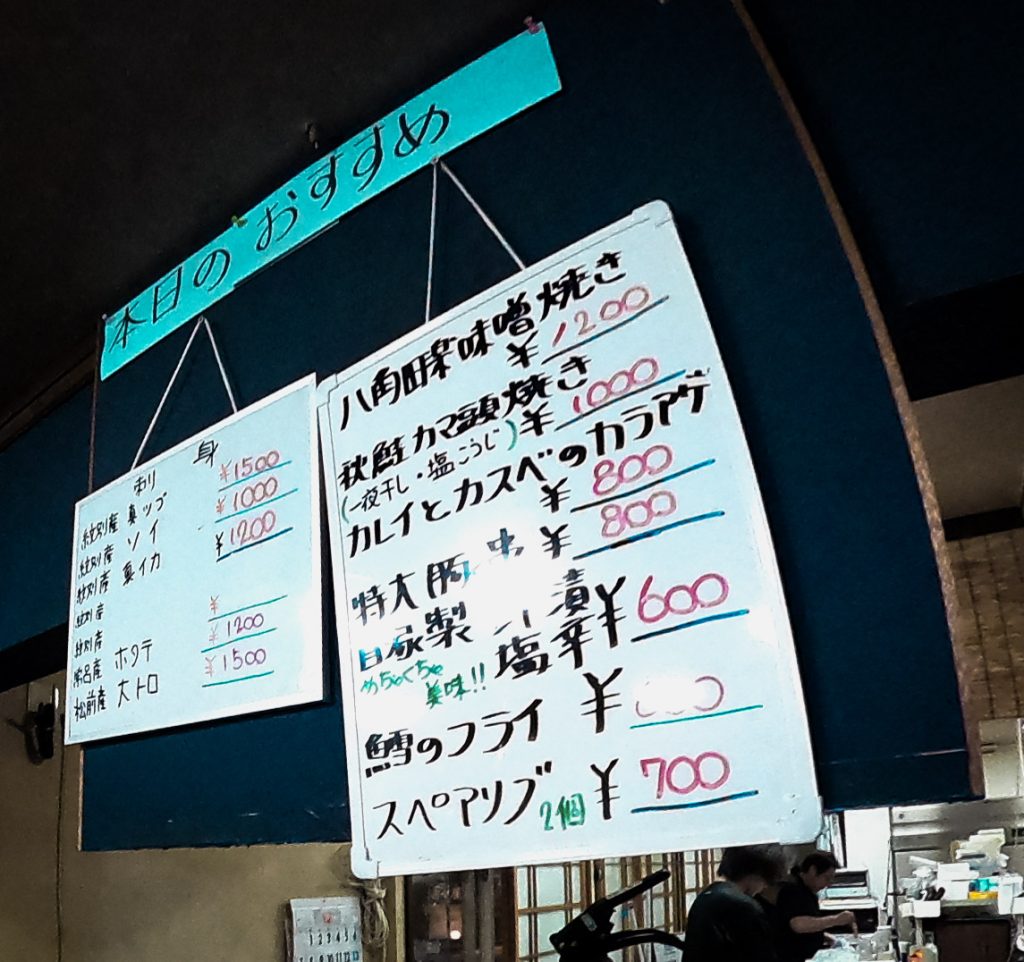 本日のおすすめ
刺身
紋別産 真ツブ ¥1500
紋別産 ソイ ¥1000
紋別産 真イカ ¥1200
紋別産
紋別産 ¥
常呂産 ホタテ ¥1200
松前産 大トロ ¥1500
八角田楽味噌焼き
¥1200
秋鮭カマ頭焼き
(一夜干し・塩こうじ) ¥1000
カレイとカスベのカラアゲ
¥800
特大豚串 ¥800
自家製 漬
めちゃくちゃ美味!! 塩辛 ¥600
鱈のフライ ¥
スペアリブ 2個 ¥700
1 2 3 4 5 6